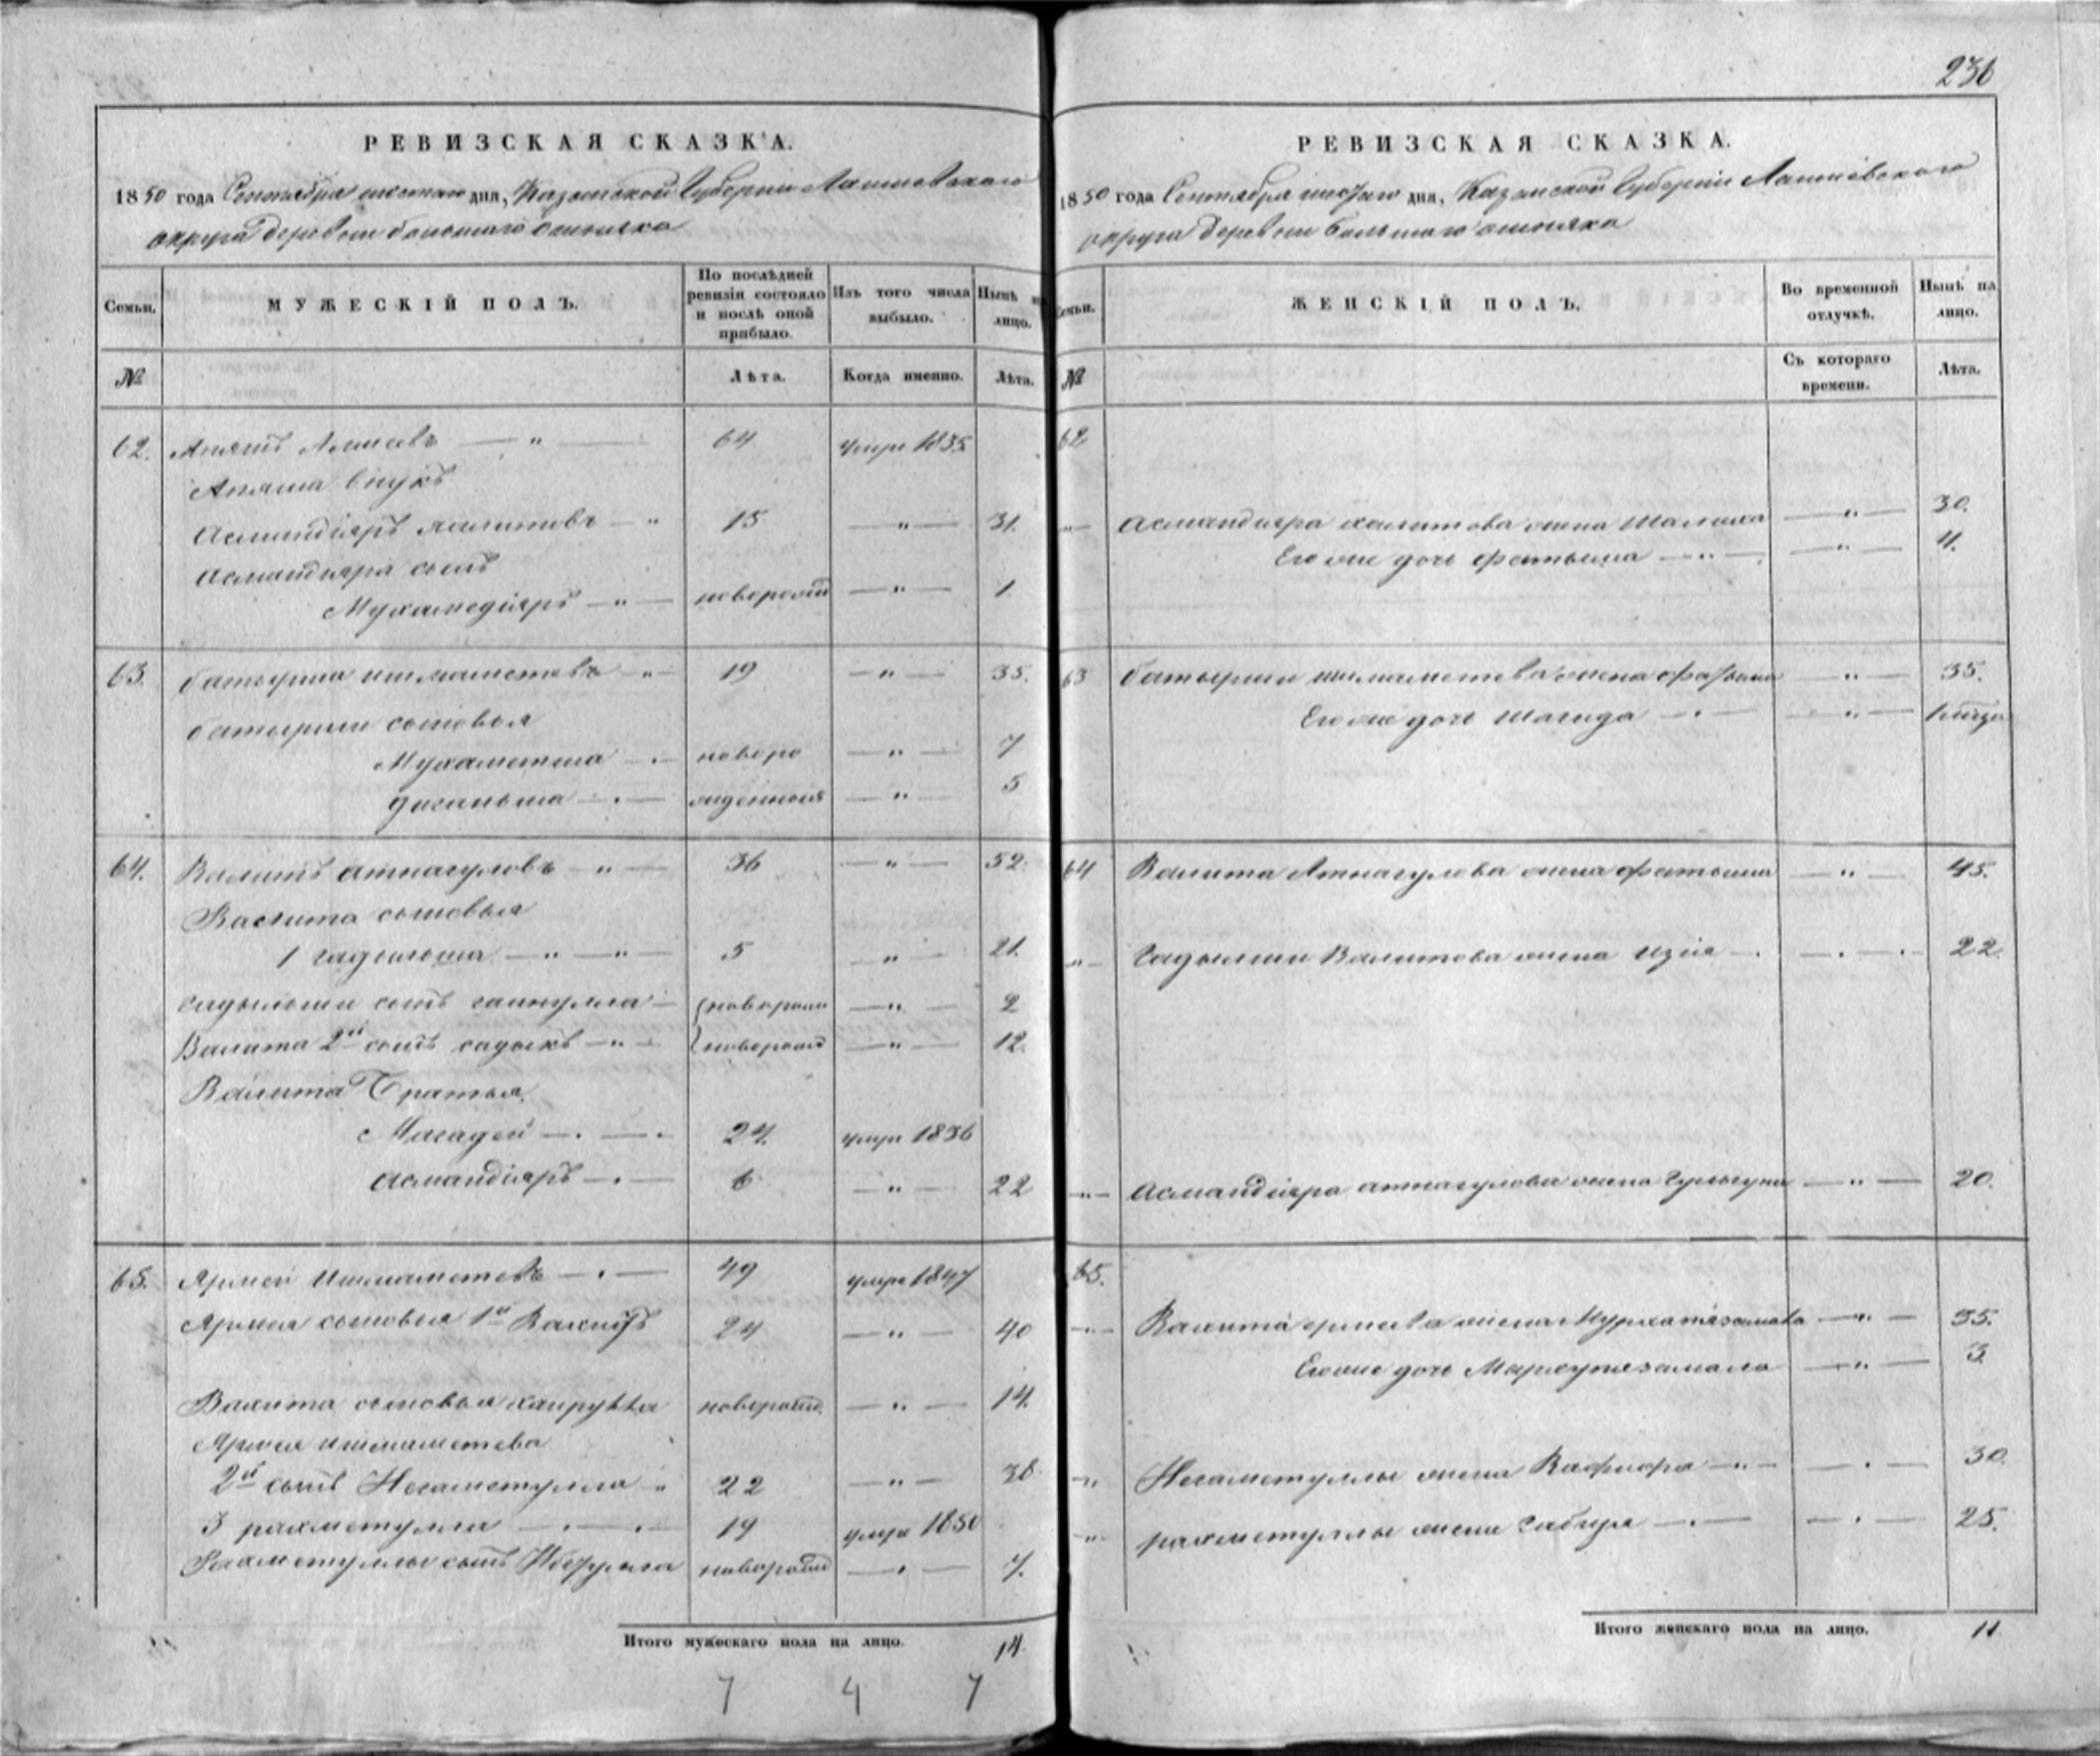 236
РЕВИЗСКАЯ СКАЗКА.
1850 года Сентября шестаго дня, Казанской Губерніи Лаишевскаго
округа деревни большаго ошняка
Семьи.
МУЖЕСКІЙ ПОЛЪ.
По послѣдней ревизіи состояло и послѣ оной прибыло.
Изъ того числа выбыло.
Нынѣ на лицо.
№
Лѣта.
Когда именно.
Лѣта.
62. Апяшъ 64 умре 1835
Апяша внукъ
Асмандіяръ халитовъ — " 15 — " — 31.
Асмандияра сынъ
Мухамедіяръ — " — новорожд — " — 1
63. батырша ишмаметевъ — " — 19 — " — 35.
батырши сыновья
Мухаметша — новоро — " — 7
диганьша — жденныя — " — 5
64. Валитъ атнагуловъ — " — 36 — " — 52.
Валита сыновья
1 гадильша — " — " — 5 — " — 21.
гадыльши сынъ гайнулла — новорожд — " — 2
Валита 2й сынъ садыкъ — " — новорожд — " — 12.
Валита братья
Магадей — 24. умре 1836
Асмандіяръ — 6 — " — 22
65. Ярмей Ишмаметевъ — 49 умре 1847
Ярмея сыновья 1й Вахитъ 24 — " — 40
Вахита сыновья хайрулла новорожд. — " — 14.
Ярмея ишмаметева
2й сынъ Негаметулла " 22 — " — 38.
3 рахметулла — 19 умре 1850
Рахметуллы сынъ новорожд — 7.
Итого мужескаго пола на лицо. 14.
7 4 7
РЕВИЗСКАЯ СКАЗКА.
1850 года Сентября шестаго дня, Казанской Губерніи Лаишевскаго
округа деревни большаго ошняка
Семьи.
ЖЕНСКІЙ ПОЛЪ.
Во временной отлучкѣ.
Нынѣ на лицо.
№
Съ котораго времени.
Лѣта.
62
" Асмандияра халитова жена — " — 30.
Его же дочь фатьима — " — — " — 11.
63 батырши ишмаметева жена фатьима — " — 35.
Его же дочь Шагида — — " — 1 мѣсяц
64 Валита Атнагулова жена фатьима — " — 45.
" Гадылши Валитова жена — 22.
" Асмандіяра атнагулова жена — " — 20.
65.
" Вахита ермеева жена — " — 35.
Его же дочь — " — 3.
" Негаметуллы жена — " — — 30.
" рахметуллы жена Сабира — — 25.
Итого женскаго пола на лицо. 11